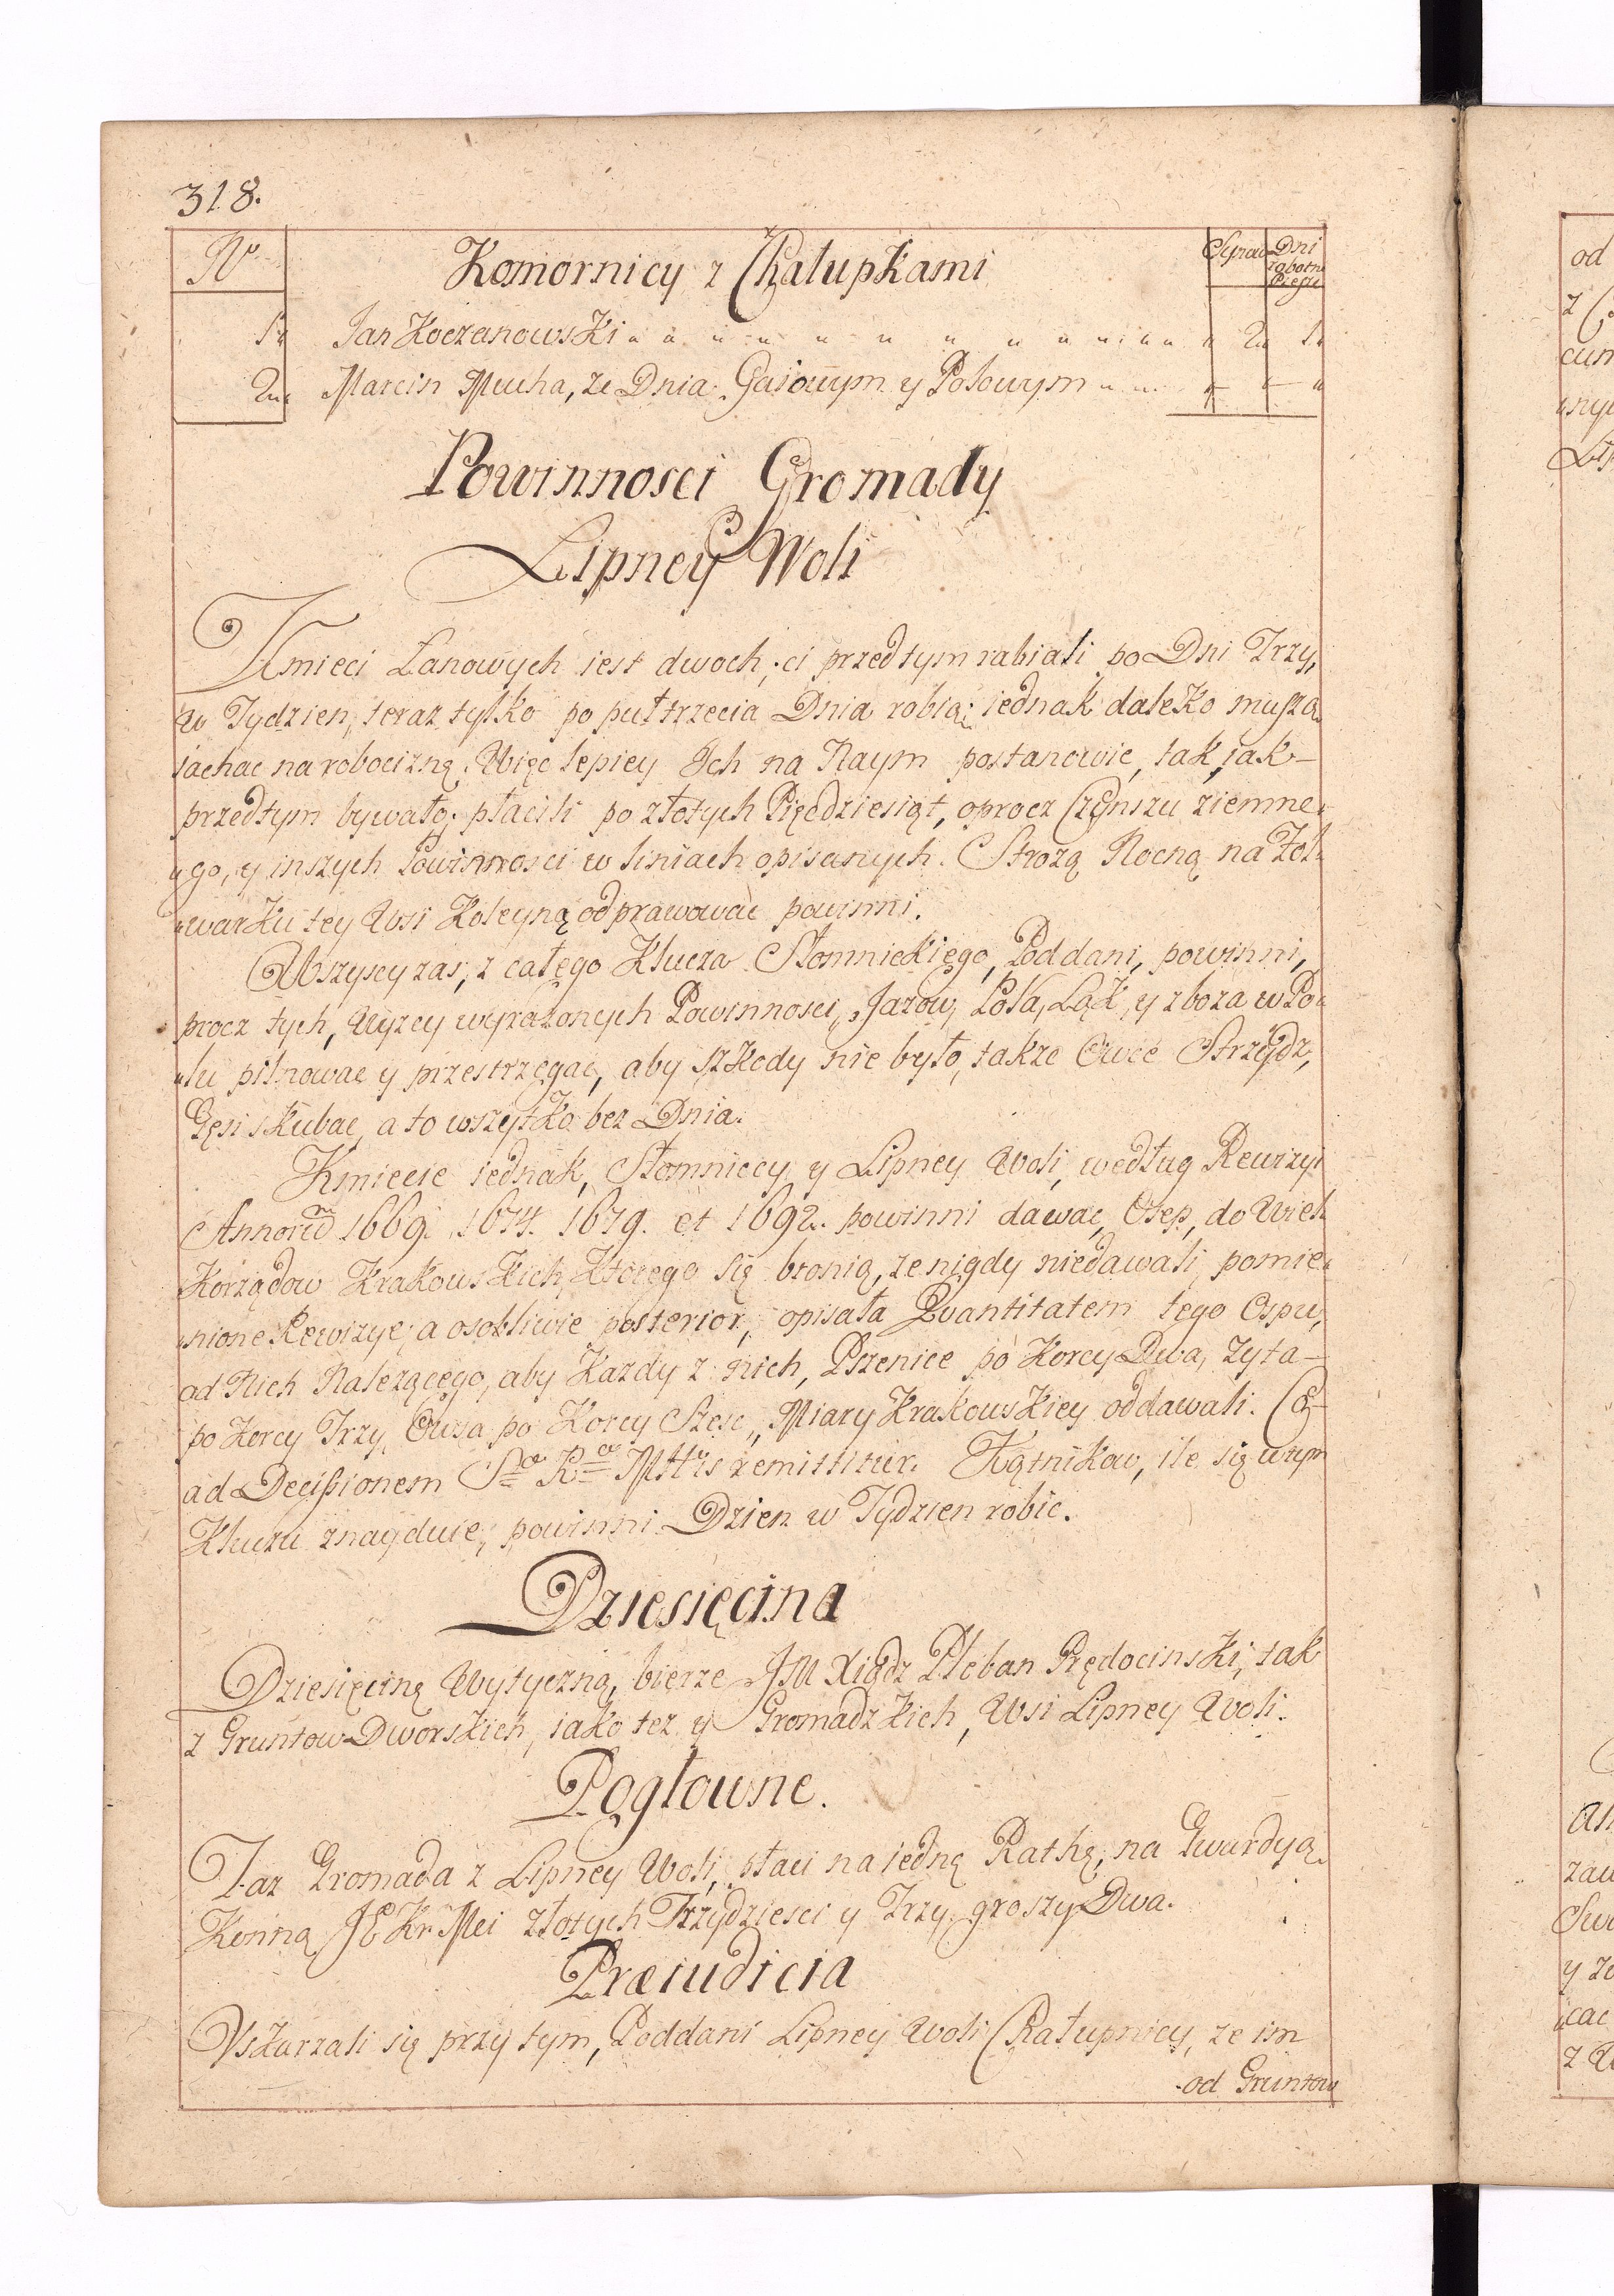 318.
No Komornicy z Chałupkami Dni robotn: Piesze
1. Jan Koczanowski 2 1
2. Marcin Mucha, ze Dnia Gaiowym y Polowym
Powinnosci Gromady
Lipney Woli
Kmieci Łanowych iest dwoch, ci przedtym rabiali po Dni Trzy,
w Tydzien, teraz tylko po pułtrzecia Dnia robią; iednak daleko muszą
iachac na robociznę. Więc lepiey Ich na Naym postanowic, tak, iak
przedtym bywało; płacili po złotych Pięcdziesiąt, oprocz Czynszu ziemne-
go, y inszych Powinnosci w liniach opisanych. Strożą Nocną na Fol-
warku tey Wsi Koleyną odprawowac powinni.
Wszyscy zas, z całego Klucza Słomnickięgo, Poddani, powinni,
procz tych, Wyzey wyrazonych Powinnosci, Jazow, Pola, Łąk, y zboza w Po-
lu pilnowac y przestrzęgac, aby szkody nie było, takze Owce Strzydz,
Gęsi skubac, a to wszytko bez Dnia.
Kmiecie iednak, Słomniccy y Lipney Woli, według Rewizyi
Annorum 1669. 1674. 1679. et 1692. powinni dawac, Osep, do Wiel-
korządow Krakowskich, ktorego się bronią, ze nigdy niedawali, pomie-
nione Rewizye; a osobliwie posterior, opisała Quantitatem tego Ospu,
od Nich Nalezącego, aby Kazdy z nich, Pszenice po Korcy Dwa, Zyta
po Korcy Trzy, Owsa po Korcy Szesc, Miary Krakowskiey oddawali. Co
ad Decissionem Sæ Ræ Mttis remittitur. Kątnikow, ile się w tym
Kluczu znayduie, powinni Dzien w Tydzien robic.
Dziesięcina
Dziesięcinę Wytyczną, bierze JM Xiądz Pleban Prędocinski, tak
z Gruntow Dworskich, iako tez y Gromadzkich, Wsi Lipney Woli.
Pogłowne.
Taz Gromada z Lipney Woli, płaci na iednę Rathę, na Gwardyą
Konną JE Kr Mci złotych Trzydziesci y Trzy, groszy Dwa.
Præiudicia
Vskarzali się przy tym, Poddani Lipney Woli Chałupnicy, ze im
od Gruntow